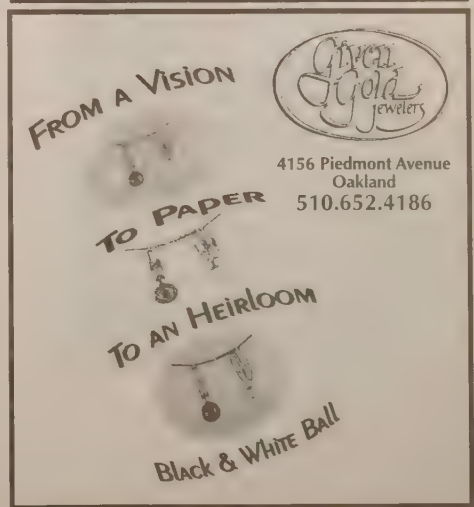 FROM A VISION
Given
Gold
Jewelers
4156 Piedmont Avenue
Oakland
510.652.4186
TO PAPER
TO AN HEIRLOOM
BLACK & WHITE BALL